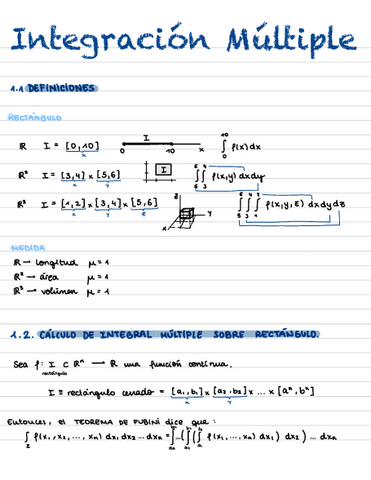 Integración Múltiple
1.1 DEFINICIONES
RECTÁNGULO
R I = [0,10] I 0 10 x ∫₀¹⁰ f(x)dx
x
R² I = [3,4] x [5,6] I ∫₅⁶ ∫₃⁴ f(x,y) dxdy
x y
R³ I = [1,2] x [3,4] x [5,6] z y x ∫₅⁶ ∫₃⁴ ∫₁² f(x,y,z) dxdydz
x y z
MEDIDA
R → longitud μ = 1
R² → área μ = 1
R³ → volúmen μ = 1
1.2. CÁLCULO DE INTEGRAL MÚLTIPLE SOBRE RECTÁNGULO.
Sea f: I ⊂ Rⁿ → R una función continua.
rectángulo
I ≡ rectángulo cerrado = [a₁,b₁] x [a₂,b₂] x ... x [aⁿ,bⁿ]
x y
Entonces, el TEOREMA DE FUBINI dice que:
∫ f(x₁, x₂, ..., xₙ) dx₁ dx₂ ... dxₙ = ∫ ...(∫(∫ f(x₁, ..., xₙ) dx₁) dx₂) ... dxₙ